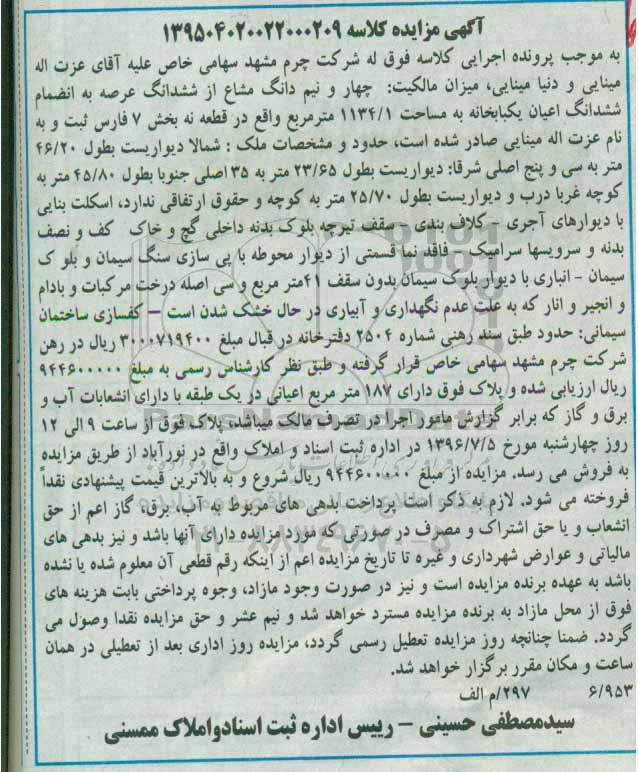 آگهی مزایده کلاسه ۱۳۹۵۰۴۰۲۰۰۲۲۰۰۰۲۰۹
به موجب پرونده اجرایی کلاسه فوق له شرکت چرم مشهد سهامی خاص علیه آقای عزت اله
مینایی و دنیا مینایی، میزان مالکیت: چهار و نیم دانگ مشاع از ششدانگ عرصه به انضمام
ششدانگ اعیان یکبابخانه به مساحت ۱۱۳۴/۱ مترمربع واقع در قطعه نه بخش ۷ فارس ثبت و به
نام عزت اله مینایی صادر شده است، حدود و مشخصات ملک : شمالا دیواریست بطول ۴۶/۲۰
متر به سی و پنج اصلی شرقا: دیواریست بطول ۲۳/۶۵ متر به ۳۵ اصلی جنوبا بطول ۴۵/۸۰ متر به
کوچه غربا درب و دیواریست بطول ۲۵/۷۰ متر به کوچه و حقوق ارتفاقی ندارد، اسکلت بنایی
با دیوارهای آجری – کلاف بندی – سقف تیرچه بلوک بدنه داخلی گچ و خاک کف و نصف
بدنه و سرویسها سرامیک – فاقد نما قسمتی از دیوار محوطه با پی سازی سنگ سیمان و بلوک
سیمان – انباری با دیوار بلوک سیمان بدون سقف ۴۱متر مربع و سی اصله درخت مرکبات و بادام
و انجیر و انار که به علت عدم نگهداری و آبیاری در حال خشک شدن است – کفسازی ساختمان
سیمانی: حدود طبق سند رهنی شماره ۲۵۰۴ دفترخانه در قبال مبلغ ۳۰۰۰۷۱۹۴۰۰ ریال در رهن
شرکت چرم مشهد سهامی خاص قرار گرفته و طبق نظر کارشناس رسمی به مبلغ ۹۴۴۶۰۰۰۰۰
ریال ارزیابی شده و پلاک فوق دارای ۱۸۷ متر مربع اعیانی در یک طبقه با دارای انشعابات آب و
برق و گاز که برابر گزارش مامور اجرا در تصرف مالک میباشد، پلاک فوق از ساعت ۹ الی ۱۲
روز چهارشنبه مورخ ۱۳۹۶/۷/۵ در اداره ثبت اسناد و املاک واقع در نورآباد از طریق مزایده
به فروش می رسد. مزایده از مبلغ ۹۴۴۶۰۰۰۰۰ ریال شروع و به بالاترین قیمت پیشنهادی نقداً
فروخته می شود. لازم به ذکر است پرداخت بدهی های مربوط به آب، برق، گاز اعم از حق
انشعاب و یا حق اشتراک و مصرف در صورتی که مورد مزایده دارای آنها باشد و نیز بدهی های
مالیاتی و عوارض شهرداری و غیره تا تاریخ مزایده اعم از اینکه رقم قطعی آن معلوم شده یا نشده
باشد به عهده برنده مزایده است و نیز در صورت وجود مازاد، وجوه پرداختی بابت هزینه های
فوق از محل مازاد به برنده مزایده مسترد خواهد شد و نیم عشر و حق مزایده نقدا وصول می
گردد. ضمنا چنانچه روز مزایده تعطیل رسمی گردد، مزایده روز اداری بعد از تعطیلی در همان
ساعت و مکان مقرر برگزار خواهد شد.
۶/۹۵۳ ۲۹۷/م الف
سیدمصطفی حسینی – رییس اداره ثبت اسناد واملاک ممسنی